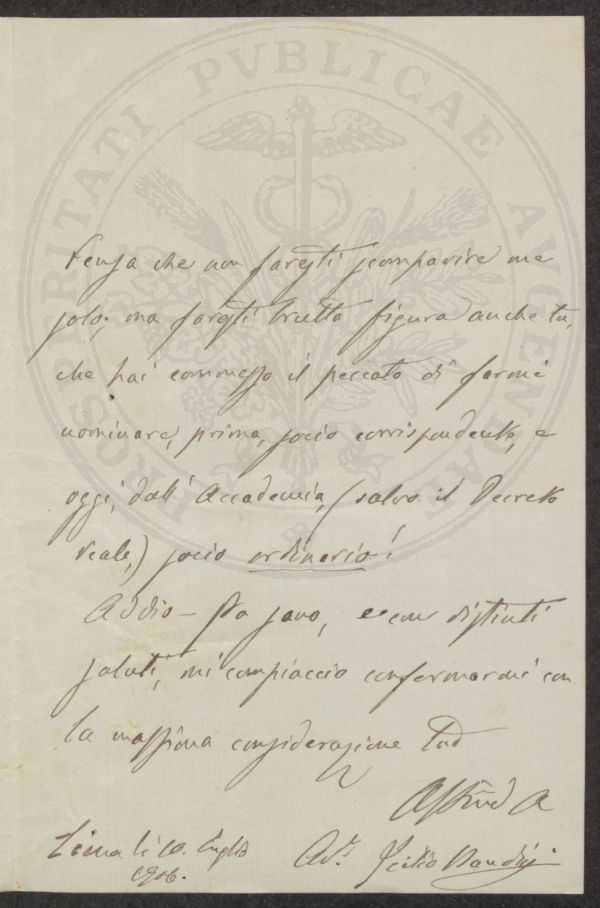 PROSPERITATI PVBLICAE AVGENDAE
Pensa che non faresti scomparire me
solo, ma faresti brutta figura anche tu,
che hai commesso il peccato di farmi
nominare, prima, socio corrispondente, e
oggi, dall' Accademia, (salvo il Decreto
reale,) socio ordinario!
Addio – Sta sano, e con distinti
saluti, mi compiaccio confermarmi con
la massima considerazione
Siena li 10. Luglio
1906.